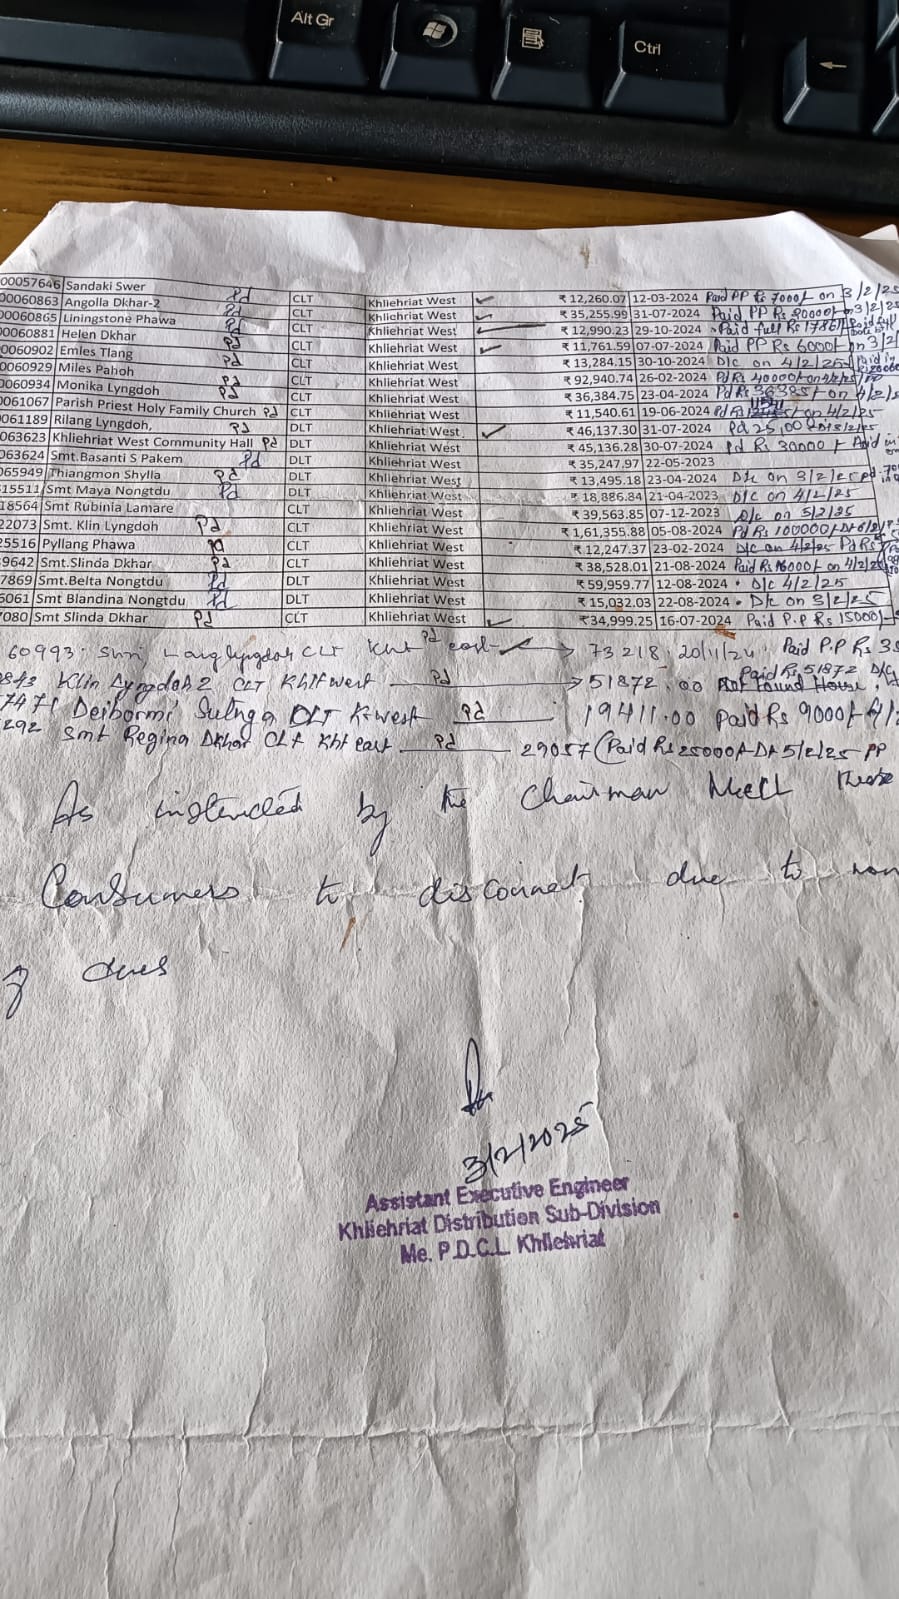 Alt Gr
Ctrl
00057646 Sandaki Swer CLT Khliehriat West ₹ 12,260.07 12-03-2024 Paid PP Rs 7000/- on 3/2/25
00060863 Angolla Dkhar-2 Pd CLT Khliehriat West ₹ 35,255.99 31-07-2024 Paid PP Rs 20000/- on 3/2/25
00060865 Liningstone Phawa Pd CLT Khliehriat West ₹ 12,990.23 29-10-2024 Paid full Rs 17861/-
0060881 Helen Dkhar Pd CLT Khliehriat West ₹ 11,761.59 07-07-2024 Paid PP Rs 6000/- on 3/2/
0060902 Emles Tlang Pd CLT Khliehriat West ₹ 13,284.15 30-10-2024 D/c on 4/2/25
0060929 Miles Pahoh Pd CLT Khliehriat West ₹ 92,940.74 26-02-2024 Pd Rs 40000/- on 4/2/25
060934 Monika Lyngdoh Pd CLT Khliehriat West ₹ 36,384.75 23-04-2024 Pd Rs 36385/- on 4/2/2
061067 Parish Priest Holy Family Church Pd CLT Khliehriat West ₹ 11,540.61 19-06-2024 Pd Rs on 4/2/25
061189 Rilang Lyngdoh, Pd DLT Khliehriat West ₹ 46,137.30 31-07-2024 Pd 25,00
063623 Khliehriat West Community Hall Pd DLT Khliehriat West ₹ 45,136.28 30-07-2024 Pd Rs 30000/-
063624 Smt.Basanti S Pakem Pd DLT Khliehriat West ₹ 35,247.97 22-05-2023
065949 Thiangmon Shylla Pd DLT Khliehriat West ₹ 13,495.18 23-04-2024 D/c on 3/2/25 Pd
15511 Smt Maya Nongtdu Pd DLT Khliehriat West ₹ 18,886.84 21-04-2023 D/C on 4/2/25
18564 Smt Rubinia Lamare CLT Khliehriat West ₹ 39,563.85 07-12-2023 D/c on 5/2/25
22073 Smt. Klin Lyngdoh Pd CLT Khliehriat West ₹ 1,61,355.88 05-08-2024 Pd Rs 100000/- Dt 6/2/
25516 Pyllang Phawa Pd CLT Khliehriat West ₹ 12,247.37 23-02-2024 D/C on 4/2/25 Pd Rs
9642 Smt.Slinda Dkhar Pd CLT Khliehriat West ₹ 38,528.01 21-08-2024 Paid Rs 16000/- on 4/2/25
7869 Smt.Belta Nongtdu Pd DLT Khliehriat West ₹ 59,959.77 12-08-2024 D/C 4/2/25
6061 Smt Blandina Nongtdu Pd DLT Khliehriat West ₹ 15,032.03 22-08-2024 D/c on 3/2/25
7080 Smt Slinda Dkhar Pd CLT Khliehriat West ₹ 34,999.25 16-07-2024 Paid P.P Rs 15000/-
60993 Shri Lang Lyngdoh CLT Kht east Pd 73218 20/11/24 Paid P.P Rs 3
Klin Lyngdoh 2 CLT Khlt west Pd 51872.00 Paid Rs 51872 D/C Not Found House
Deibormi Sutnga DLT K-west Pd 19411.00 Paid Rs 9000/- 4/2
292 Smt Regina Dkhar CLT Kht east Pd 29057 (Paid Rs 25000/- Dt 5/2/25 PP
As instructed by the Chairman MeECL these
Consumers to disconnect due to non
of dues
3/2/2025
Assistant Executive Engineer
Khliehriat Distribution Sub-Division
Me. P.D.C.L. Khliehriat